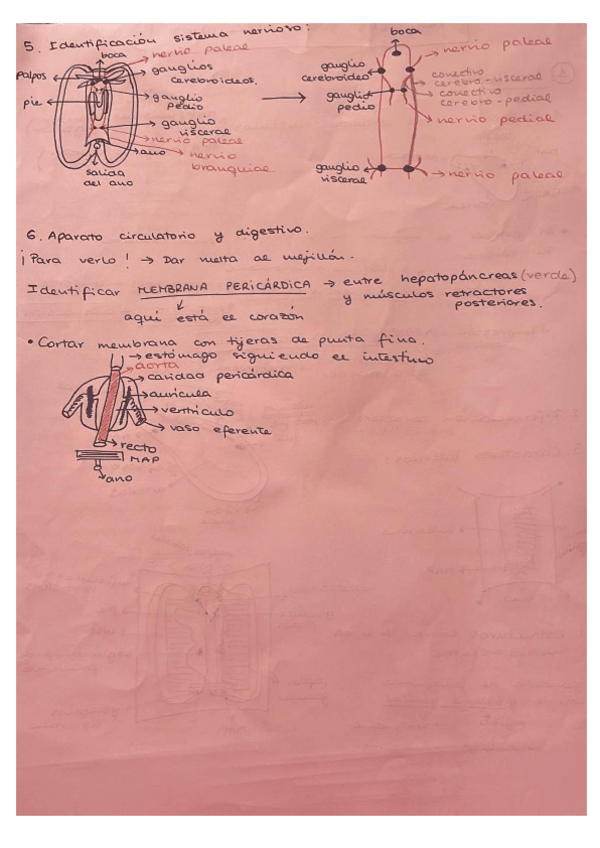 5. Identificación sistema nervioso:
boca
nervio paleal
palpos
ganglios
cerebroideos.
pie
ganglio
pedio
ganglio
visceral
nervio paleal
ano
nervio
branquial
salida
del ano
boca
nervio paleal
ganglio
cerebroideo
conectivo
cerebro-visceral
ganglio
pedio
conectivo
cerebro-pedial
nervio pedial
ganglio
visceral
nervio paleal
6. Aparato circulatorio y digestivo.
¡Para verlo! → Dar vuelta al mejillón.
Identificar MEMBRANA PERICÁRDICA → entre hepatopáncreas (verde)
y músculos retractores
posteriores.
aquí está el corazón
• Cortar membrana con tijeras de punta fina.
→ estómago siguiendo el intestino
aorta
cavidad pericárdica
aurícula
ventrículo
vaso eferente
recto
MAP
ano